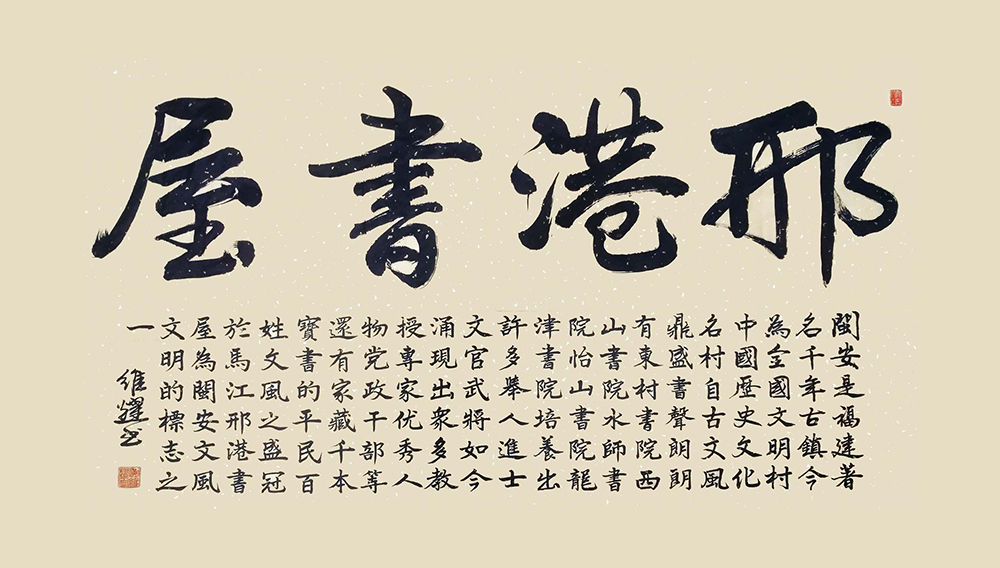 邢港書屋
閩安是福建著
名千年古鎮今
為全國文明村
中國歷史文化
名村自古文風
鼎盛書聲朗朗
有東村書院西
山書院水師書
院怡山書院龍
津書院培養出
許多舉人進士
文官武將如今
涌現出衆多教
授專家优秀人
物党政干部等
還有家藏千本
寶書的平民百
姓文風之盛冠
於馬江邢港書
屋為閩安文風
文明的標志之
一
維耀书